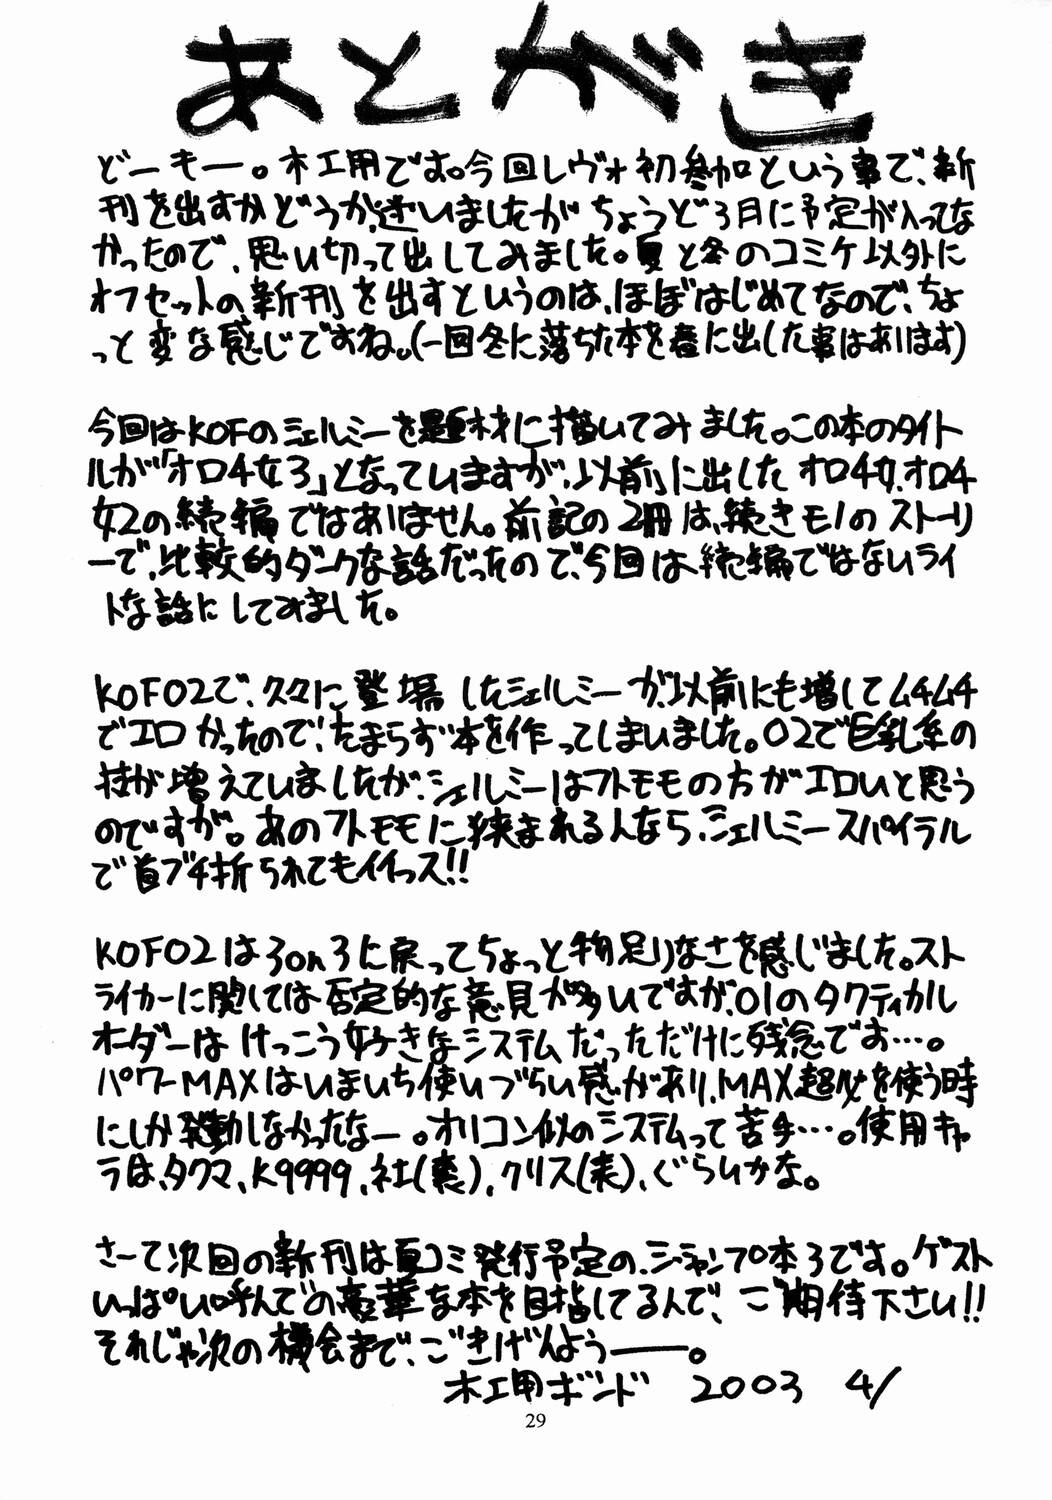 あとがき
どーもー。木工用です。今回レヴォ初参加という事で、新
刊を出すかどうか迷いましたがちょうど3月に予定が入ってな
かったので、思い切って出してみました。夏と冬のコミケ以外に
オフセットの新刊を出すというのは、ほぼはじめてなので、ちょ
っと変な感じですね。(一回冬に落ちた本を春に出した事はあります)
今回はKOFのシェルミーを題材に描いてみました。この本のタイト
ルが「オロチ女3」となっていますが、以前に出したオロチ女、オロチ
女2の続編ではありません。前記の2冊は、続きモノのストーリ
ーで、比較的ダークな話だったので、今回は続編ではないライ
トな話にしてみました。
KOF02で、久々に登場したシェルミーが、以前にも増してムチムチ
でエロかったので、たまらず本を作ってしまいました。02で巨乳系の
技が増えていましたが、シェルミーはフトモモの方がエロいと思う
のですが。あのフトモモに挟まれる人なら、シェルミースパイラル
で首ブチ折られてもイイっス!!
KOF02は3on3に戻ってちょっと物足りなさを感じました。スト
ライカーに関しては否定的な意見が多いですが、01のタクティカル
オーダーはけっこう好きなシステムだっただけに残念です…。
パワーMAXはいまいち使いづらい感があり、MAX超必を使う時
にしか発動しなかったなー。オリコン似のシステムって苦手…。使用キャ
ラは、タクマ、K9999、社(裏)、クリス(表)、ぐらいかな。
さーて次回の新刊は夏コミ発行予定の、ジャンプ本3です。ゲスト
いっぱい呼んでの豪華な本を目指してるんで、ご期待下さい!!
それじゃ次の機会まで、ごきげんよう――。
木工用ボンド 2003 4/
29